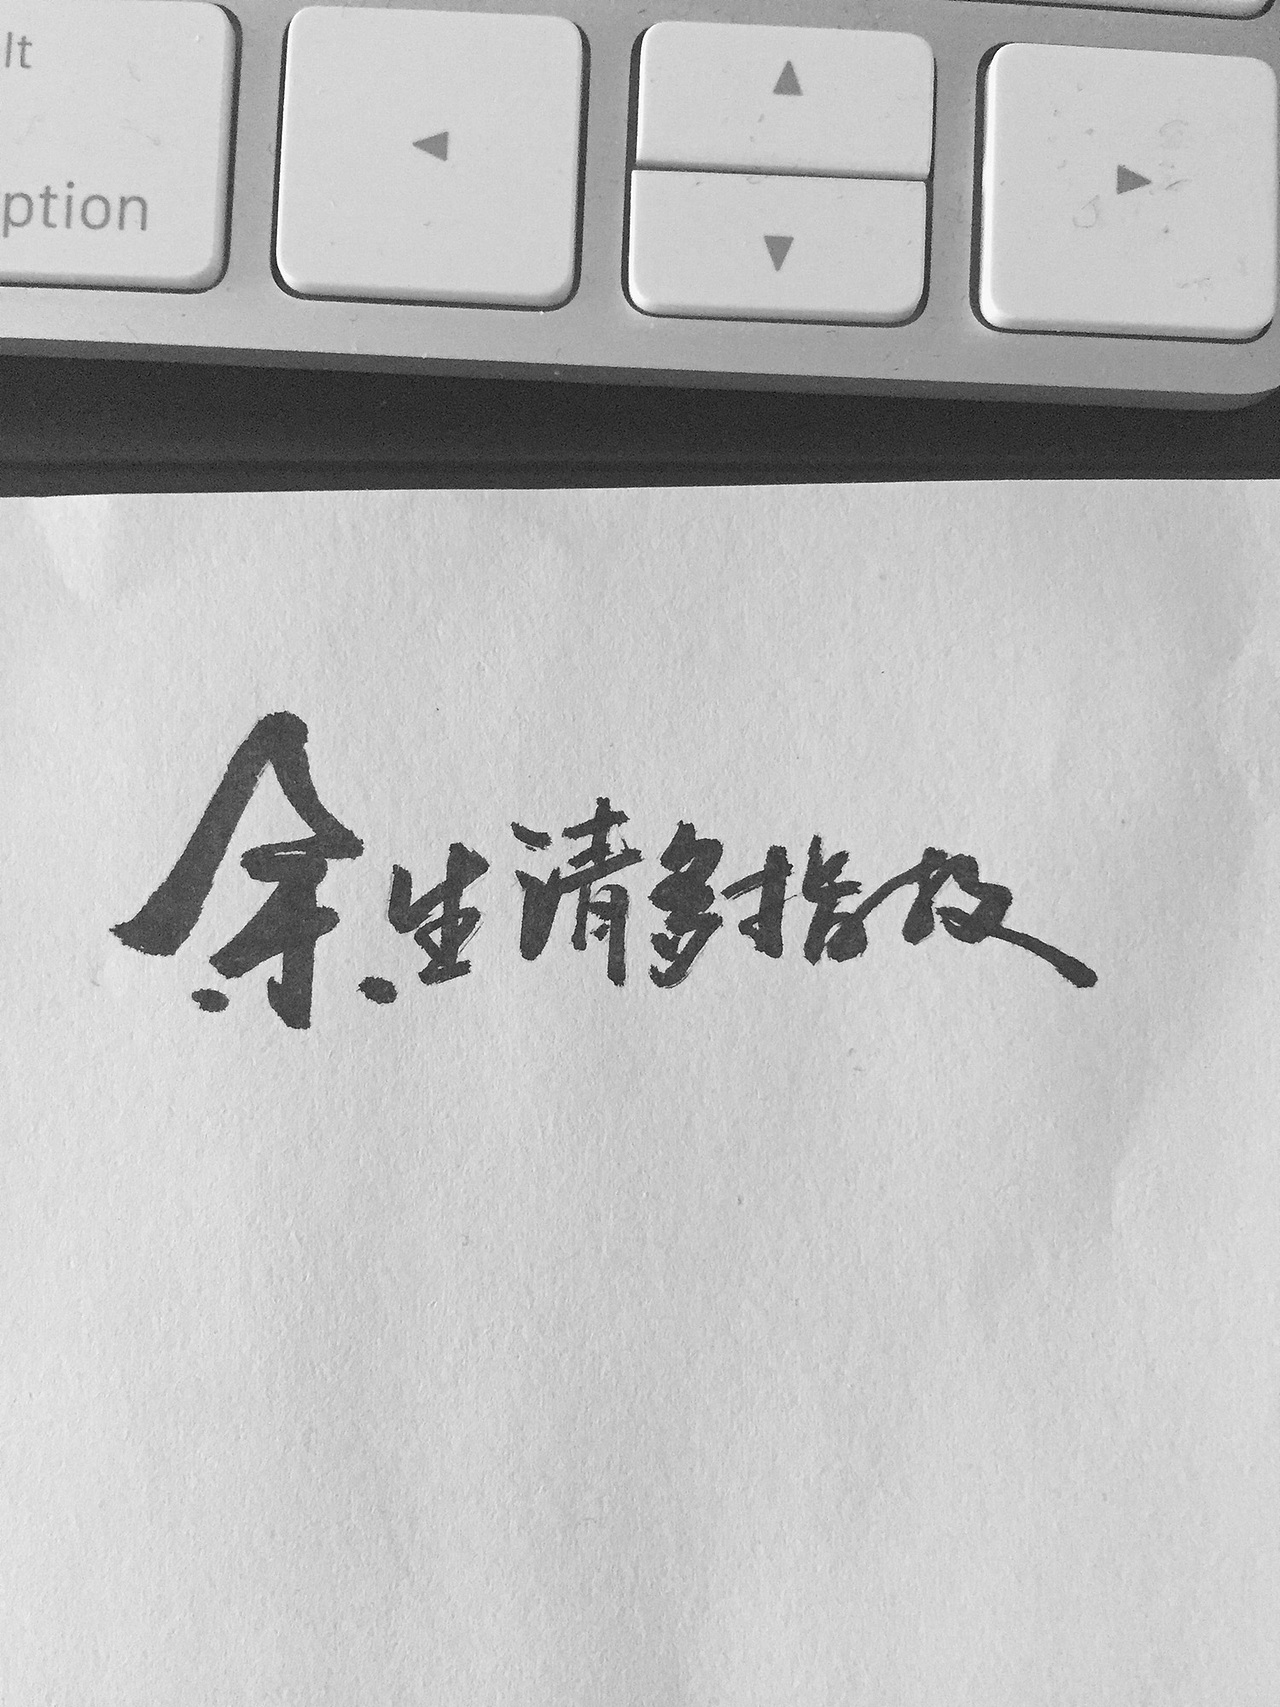 lt
ption
余生请多指教